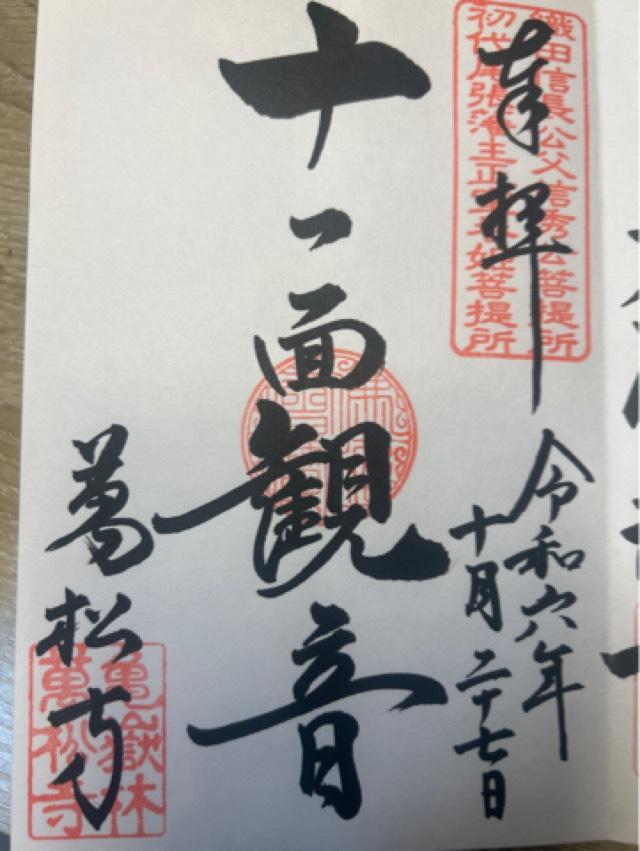 奉拝
織田信長公父信秀公菩提所
初代尾張藩主正室春姫菩提所
令和六年
十月二十七日
十一面観音
萬松寺
亀嶽林
萬松寺